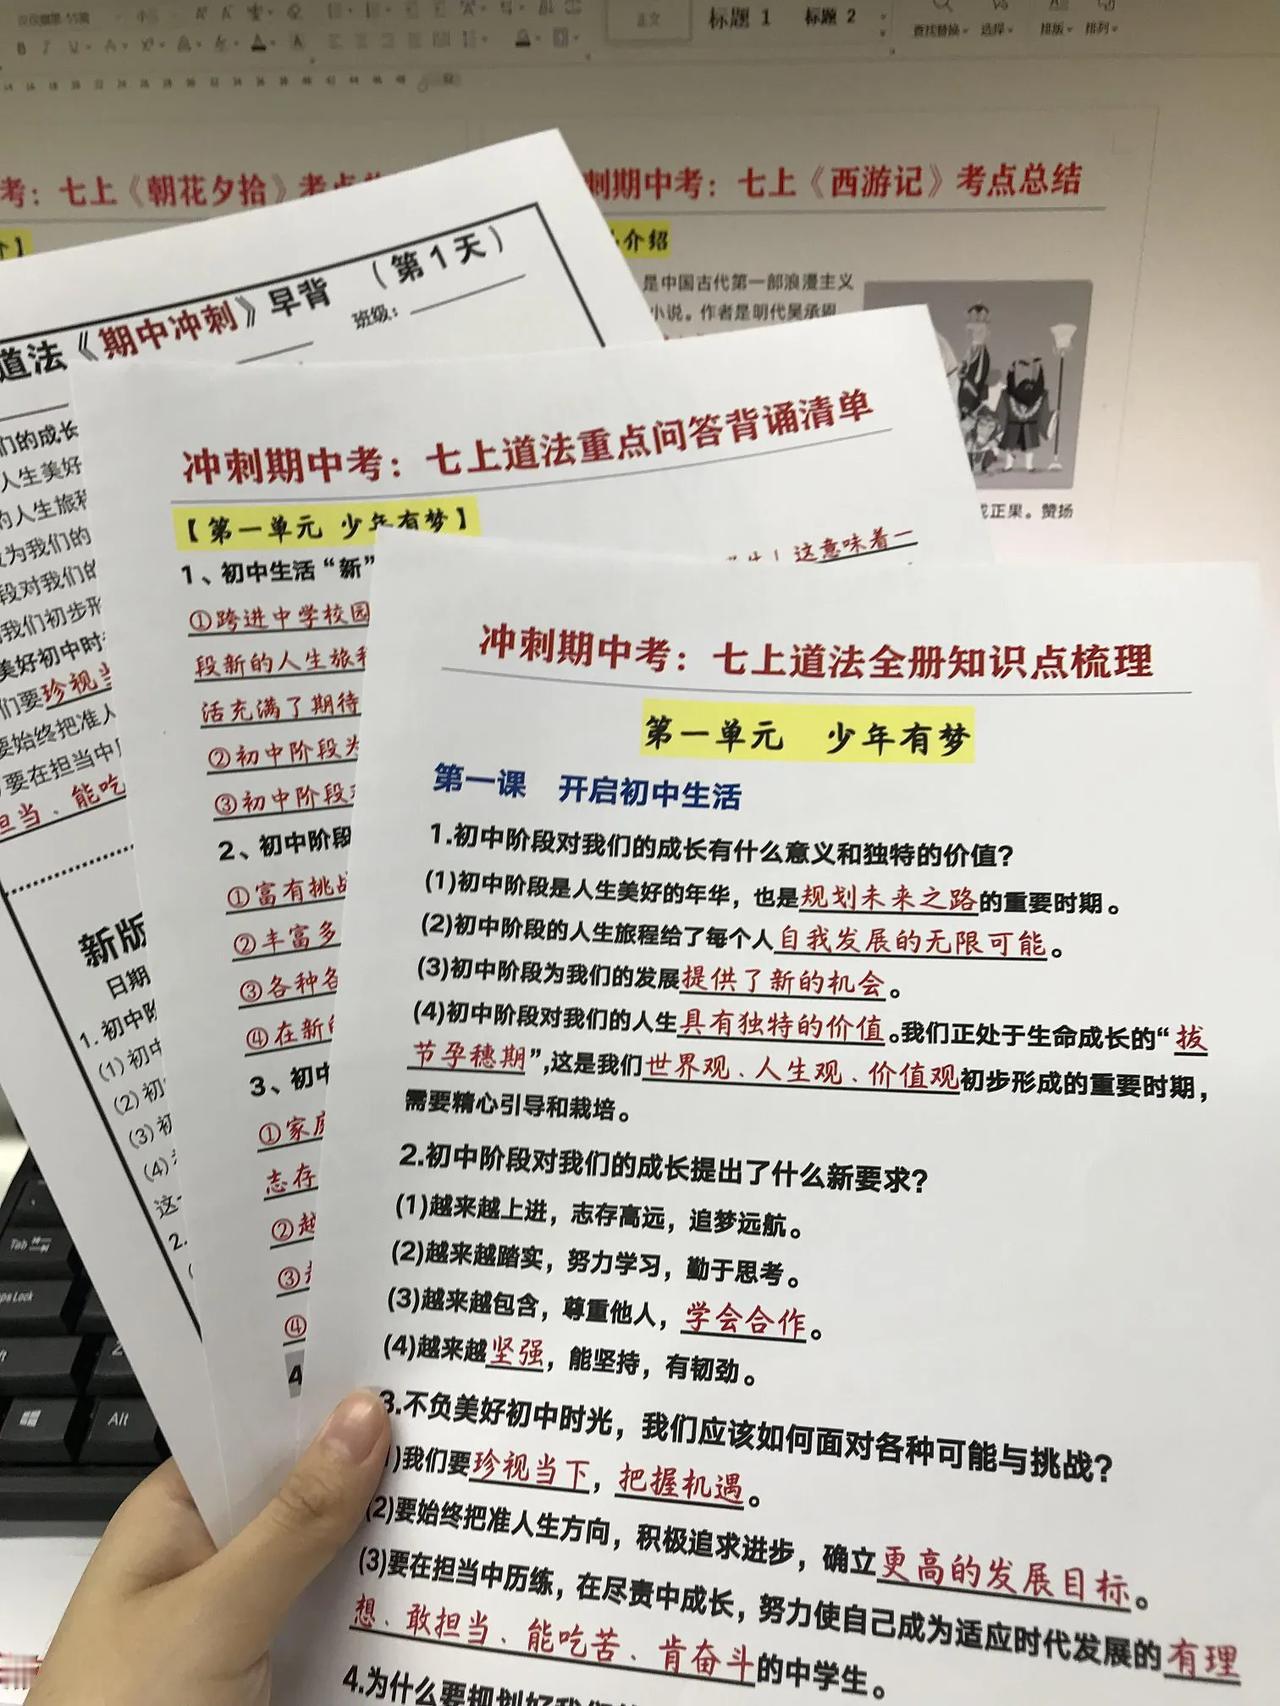 正文
标题 1
标题 2
查找替换
选择
排版
排列
考：七上《朝花夕拾》考点
刺期中考：七上《西游记》考点总结
介绍
是中国古代第一部浪漫主义
小说。作者是明代吴承恩
正果。赞扬
道法《期中冲刺》早背 （第1天）
班级：
们的成长
人生美好
的人生旅程
为我们的
段对我们的
我们初步形
美好初中时
们要珍视当
要始终把准人
要在担当中
担当、能吃
新版
日期
1. 初中阶
(1) 初中
(2) 初
(3) 初
(4)
这
2.
冲刺期中考：七上道法重点问答背诵清单
【第一单元 少年有梦】
1、初中生活“新”
这意味着一
①跨进中学校园
段新的人生旅程
活充满了期待
②初中阶段为
③初中阶段对
2、初中阶段
①富有挑战
②丰富多
③各种各
④在新的
3、初中
①家庭
志存
②越
③
④
4
冲刺期中考：七上道法全册知识点梳理
第一单元 少年有梦
第一课 开启初中生活
1.初中阶段对我们的成长有什么意义和独特的价值？
(1)初中阶段是人生美好的年华，也是规划未来之路的重要时期。
(2)初中阶段的人生旅程给了每个人自我发展的无限可能。
(3)初中阶段为我们的发展提供了新的机会。
(4)初中阶段对我们的人生具有独特的价值。我们正处于生命成长的“拔
节孕穗期”，这是我们世界观、人生观、价值观初步形成的重要时期，
需要精心引导和栽培。
2.初中阶段对我们的成长提出了什么新要求？
(1)越来越上进，志存高远，追梦远航。
(2)越来越踏实，努力学习，勤于思考。
(3)越来越包含，尊重他人，学会合作。
(4)越来越坚强，能坚持，有韧劲。
3.不负美好初中时光，我们应该如何面对各种可能与挑战？
1)我们要珍视当下，把握机遇。
(2)要始终把准人生方向，积极追求进步，确立更高的发展目标。
(3)要在担当中历练，在尽责中成长，努力使自己成为适应时代发展的有理
想、敢担当、能吃苦、肯奋斗的中学生。
4.为什么要规划好我们的
Tab
ps Lock
Alt